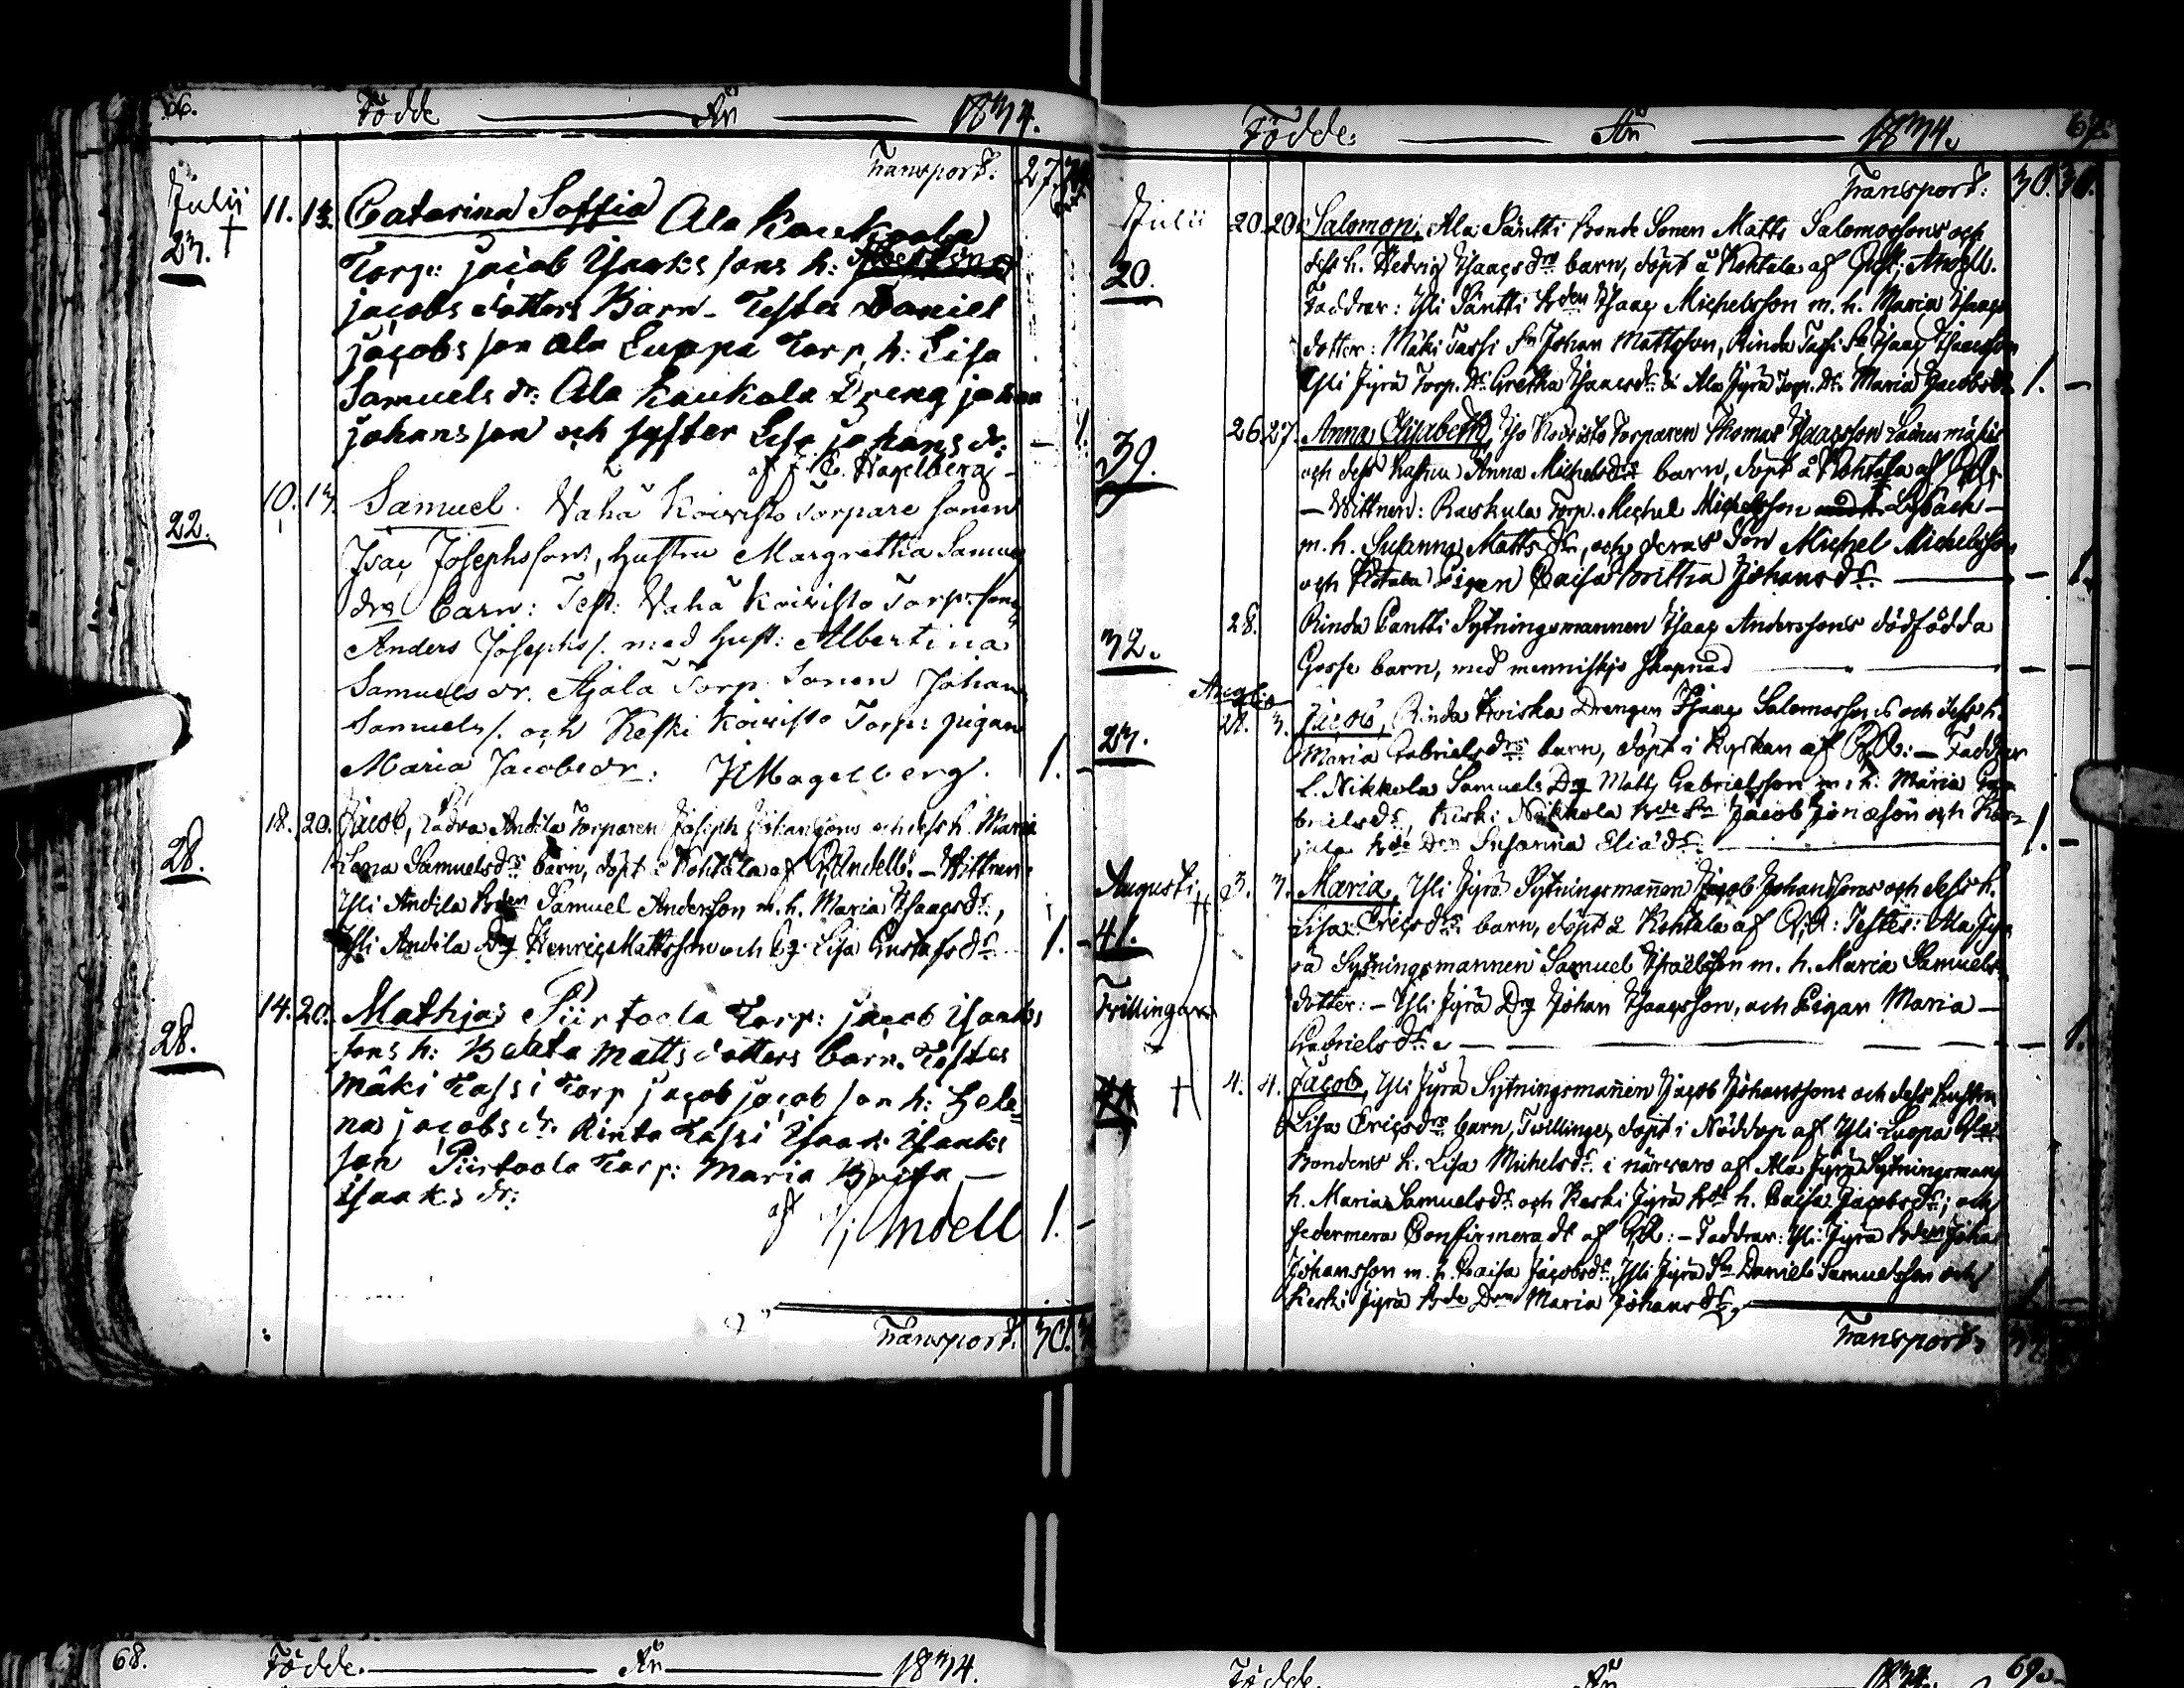 66. Födde År 1834.
Transport: 27.
Julii 11. 13. Catarina Soffia Ala Kaukoala
23. † Torp: jacob Isaaks sons h: Albertina
jacobs dotters Barn. Testes Daniel
jacobs son Ala Luopa Torp, h: Lisa
Samuels dr: Ala Kaukola Dreng johan
johans son och syster Lisa johans dr: — 1.
af J. C. Hagelberg
10. 13. Samuel. Vähä Koivisto Torpare sonen
22. Isac Josephssons, hustru Margretha Samuels
drs barn: Test: Vähä Koivisto Torp: son
Anders Josephs s. med hust: Albertina
Samuels dr. Äjälä Torp. Sonen Johan
Samuels s. och Keski Koivisto Torp: pigan
Maria Jacobs dr: Hagelberg. 1. –
18. 20. Jacob, Andila Torparen Joseph Johanssons och dess h. Maria
28. Lena Samuelsdrs barn, döpt å Kohtala af Andell. – Wittnen:
Yli Andila Samuel Andersson m. h. Maria Isaacsdr.,
Yli Andila Dg Henric Mattsson och Lisa Gustafsdr. 1. –
14. 20. Mathjas Piirtoola Torp: jacob Isaaks
28. sons h: Beata Matts dotters barn. Testes
Mäki Tassi Torp jacob jacob son h: Hele=
na jacobs dr. Rinta Tassi Isaak Isaaks
son Piirtoola Torp: Maria Brita —
Isaaks dr:
af Andell 1. –
Transport. 30.
Födde: År 1834. 67.
Transport: 30. 30.
Julii 20. 20. Salomon, Ala Säntti Bonde Sonen Matts Salomossons och
20. dess h. Hedvig Isaacsdrs barn, döpt å Kohtala af Andell.
Faddrar: Yli Säntti Isaac Michelsson m. h. Maria Isaacs
dotter: Mäki Tassi Johan Mattsson, Rinda Tassi Isaac Isaacsson
Yli Jyrä Torp. Dr. Gretha Isaacsdr. & Ala Jyrä Torp. Dr. Maria Jacobsdr. 1. –
26. 27. Anna Elisabeth, Iso Koivisto Torparen Thomas Isaacsson
39. och dess hustru Anna Michelsdrs barn, döpt å Kohtala af
— Wittnen: Raskula Torp. Michel Michelsson —
m. h. Susanna Mattsdr., och deras Son Michel Michelsson
och Pigan Caisa Britta Johansdr. — – 1.
28. Rinda Cantti Sytningsmannen Isaac Anderssons dödfödda
32. Gosse barn, med menniskjo skapnad — –
28. 3. Jacob, Rinda Drengen Isaac Salomossons och dess h.
23. Maria Gabrielsdrs barn, döpt i Kyrkan af – Faddrar
L. Nikkola Samuels Dg Matts Gabrielsson m. h: Maria Ga=
brielsdr., Keski Nikkola Jacob Jonasson och
Susanna Eliædr. — 1. –
Augusti 3. 3. Maria, Yli Jyrä Sytningsmannen Jacob Johanssons och dess h.
41. Lisa Ericsdrs barn, döpt å Kohtala af Testes: Ala Jy=
rä Sytningsmannen Samuel Israelsson m. h. Maria Samuels
Tvillingar dotter: – Yli Jyrä Dg Johan Isaacsson, och Pigan Maria —
Gabrielsdr. — – 1.
† 4. 4. Jacob, Yli Jyrä Sytningsmannen Jacob Johanssons och dess hustru
Lisa Ericsdrs barn, Tvillinge, döpt i Nöddop af Yli Luopa
Bondens h. Lisa Michelsdr. i närvaro af Ala Jyrä Sytningsmans
h. Maria Samuelsdr. och Keski Jyrä h. Caisa Jacobsdr; och
sedermera Confirmeradt af – Faddrar: Yli Jyrä Johan
Johansson m. h. Caisa Jacobsdr., Yli Jyrä Daniel Samuelsson och
Keski Jyrä Maria Johansdr.
Transport:
68. Födde. År 1834.
Födde. År 1834. 69.